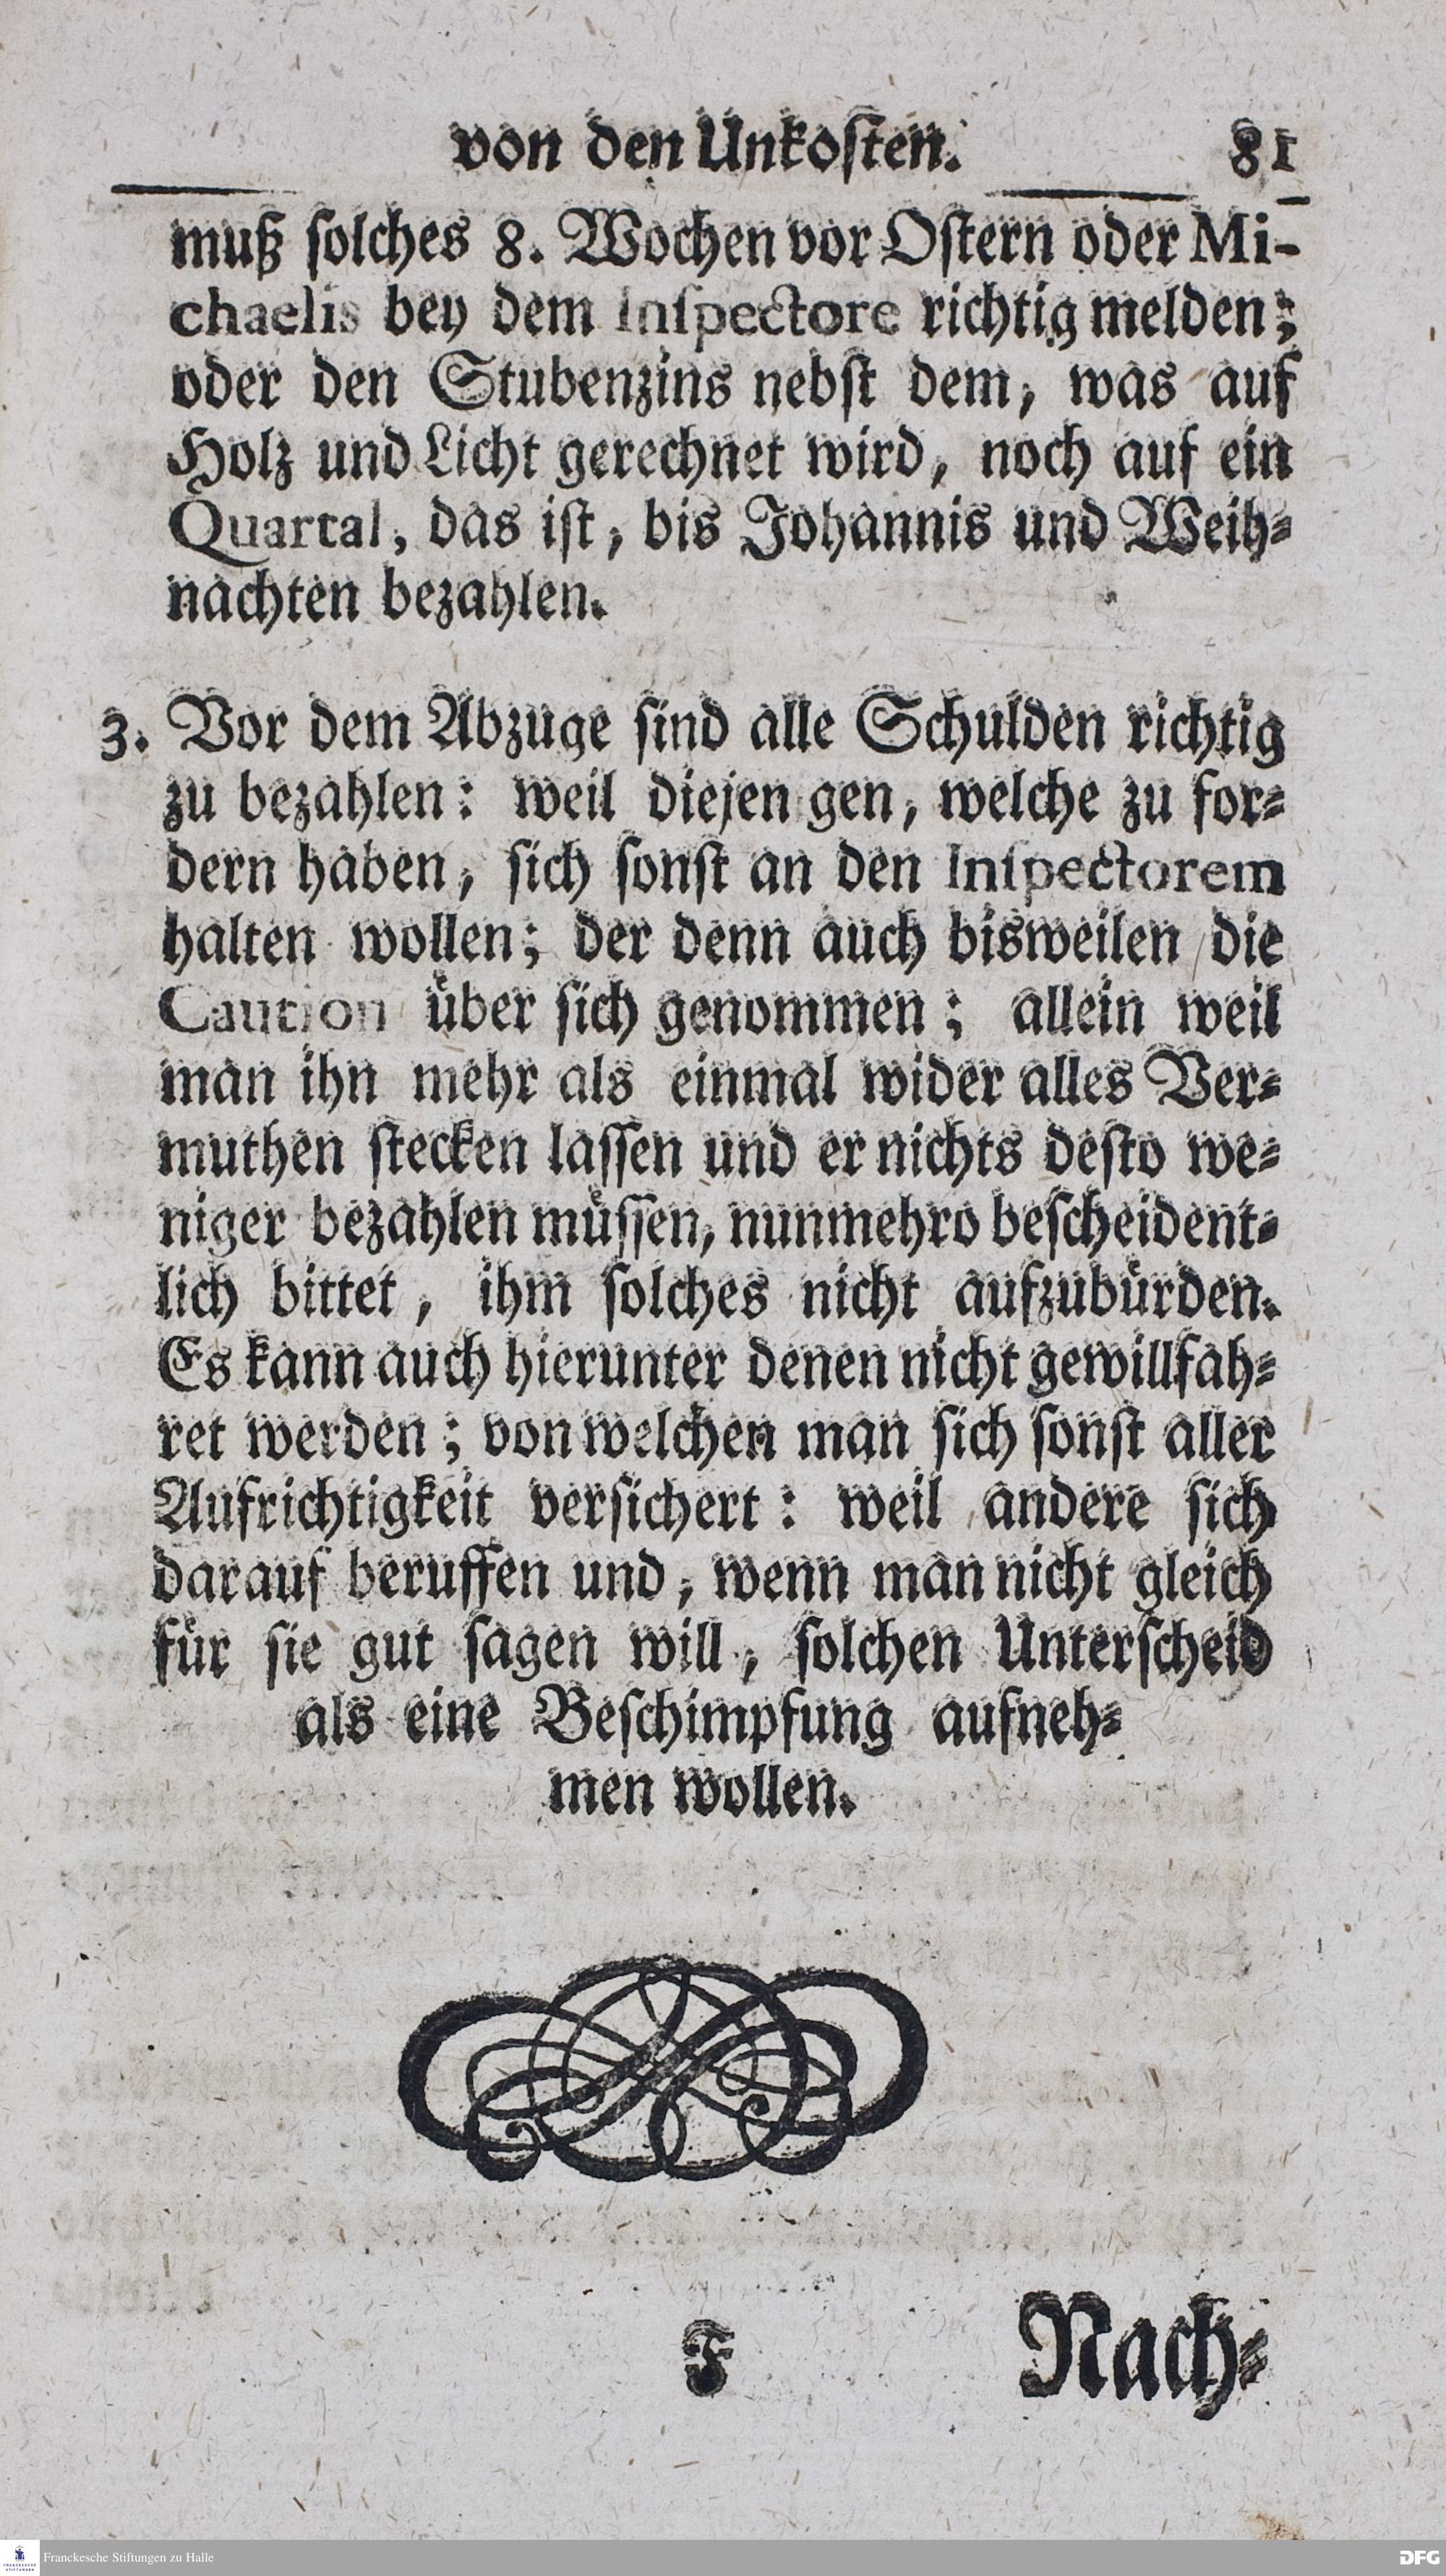 von den Unkosten. 81
muß solches 8. Wochen vor Ostern oder Mi-
chaelis bey dem Inspectore richtig melden;
oder den Stubenzins nebst dem, was auf
Holz und Licht gerechnet wird, noch auf ein
Quartal, das ist, bis Johannis und Weih-
nachten bezahlen.
3. Vor dem Abzuge sind alle Schulden richtig
zu bezahlen: weil diejen gen, welche zu for-
dern haben, sich sonst an den Inspectorem
halten wollen; der denn auch bisweilen die
Caution über sich genommen; allein weil
man ihn mehr als einmal wider alles Ver-
muthen stecken lassen und er nichts desto we-
niger bezahlen müssen, nunmehro bescheident-
lich bittet, ihm solches nicht aufzubürden.
Es kann auch hierunter denen nicht gewillfah-
ret werden; von welchen man sich sonst aller
Aufrichtigkeit versichert: weil andere sich
darauf beruffen und, wenn man nicht gleich
für sie gut sagen will, solchen Unterscheid
als eine Beschimpfung aufneh-
men wollen.
F Nach-
Franckesche Stiftungen zu Halle
DFG